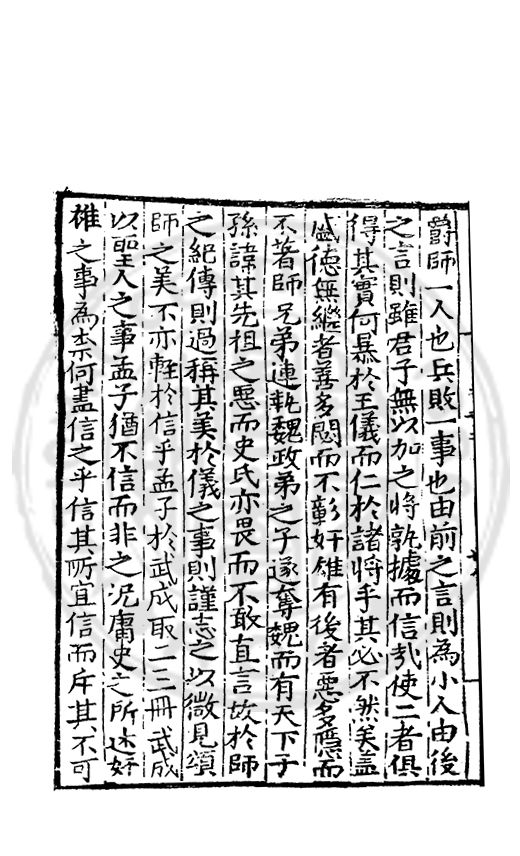 爵師一人也兵敗一事也由前之言則為小人由後
之言則雖君子無以加之將孰據而信哉使二者俱
得其實何暴於王儀而仁於諸將乎其必不然矣盖
盛德無繼者善多閟而不彰奸雄有後者惡多隱而
不著師兄弟連執魏政弟之子遂奪魏而有天下子
孫諱其先祖之惡而史氏亦畏而不敢直言故於師
之紀傳則過稱其美於儀之事則謹志之以微見頌
師之美不亦輕於信乎孟子於武成取二三冊武成
以聖人之事孟子猶不信而非之况庸史之所述奸
雄之事為柰何盡信之乎信其所宜信而斥其不可